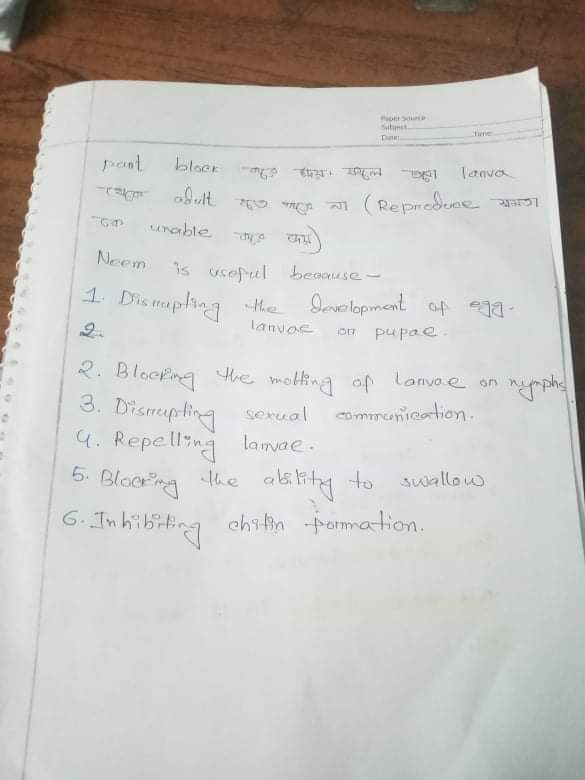 Paper Source
Subject
Date: Time:
part block করে দেয়। ফলে তারা larva
থেকে adult হতে পারে না (Reproduce ক্ষমতা
কে unable করে দেয়)
Neem is useful because -
1. Disrupting the development of egg.
2. larvae or pupae.
2. Blocking the molting of larvae or nymphs.
3. Disrupting sexual communication.
4. Repelling larvae.
5. Blocking the ability to swallow
6. Inhibiting chitin formation.